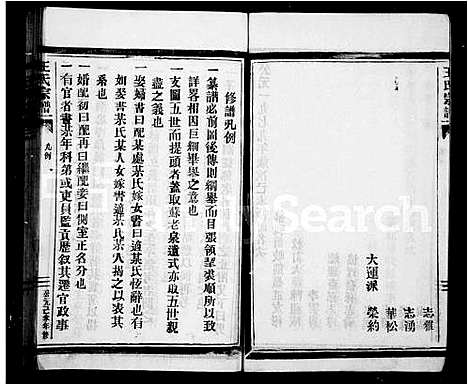 王氏宗譜
大運派
志雅
志湧
華松
榮約
修譜凡例
一纂譜必前圖後傳則綱舉而目張領挈裘順所以致
詳審相因巨細畢舉之爲也
一支圖五世而提頭者蓋取蘇老泉遺式亦取五世親
盡之義也
一娶婦書曰配某處某氏嫁女書曰適某氏恆辭也有
如娶書某氏某人女嫁書適某氏某人揭之以表其
系也
一婚配初曰配再曰繼配妾曰側室正名分也
一有官者書某年科第或吏員監立歷叙其遷官政事
王氏宗譜
凡例
一
FamilySearch